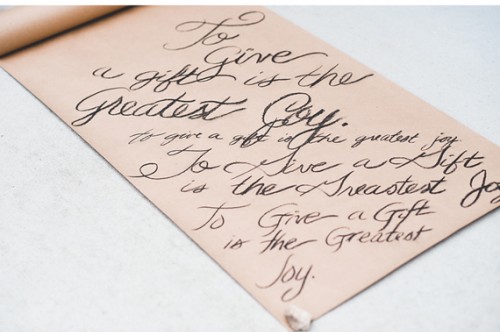 To
Give
a gift is the
Greatest Joy.
to give a gift is the greatest joy
To Give a Gift
is the Greastest Joy
To Give a Gift
is the Greatest
Joy.